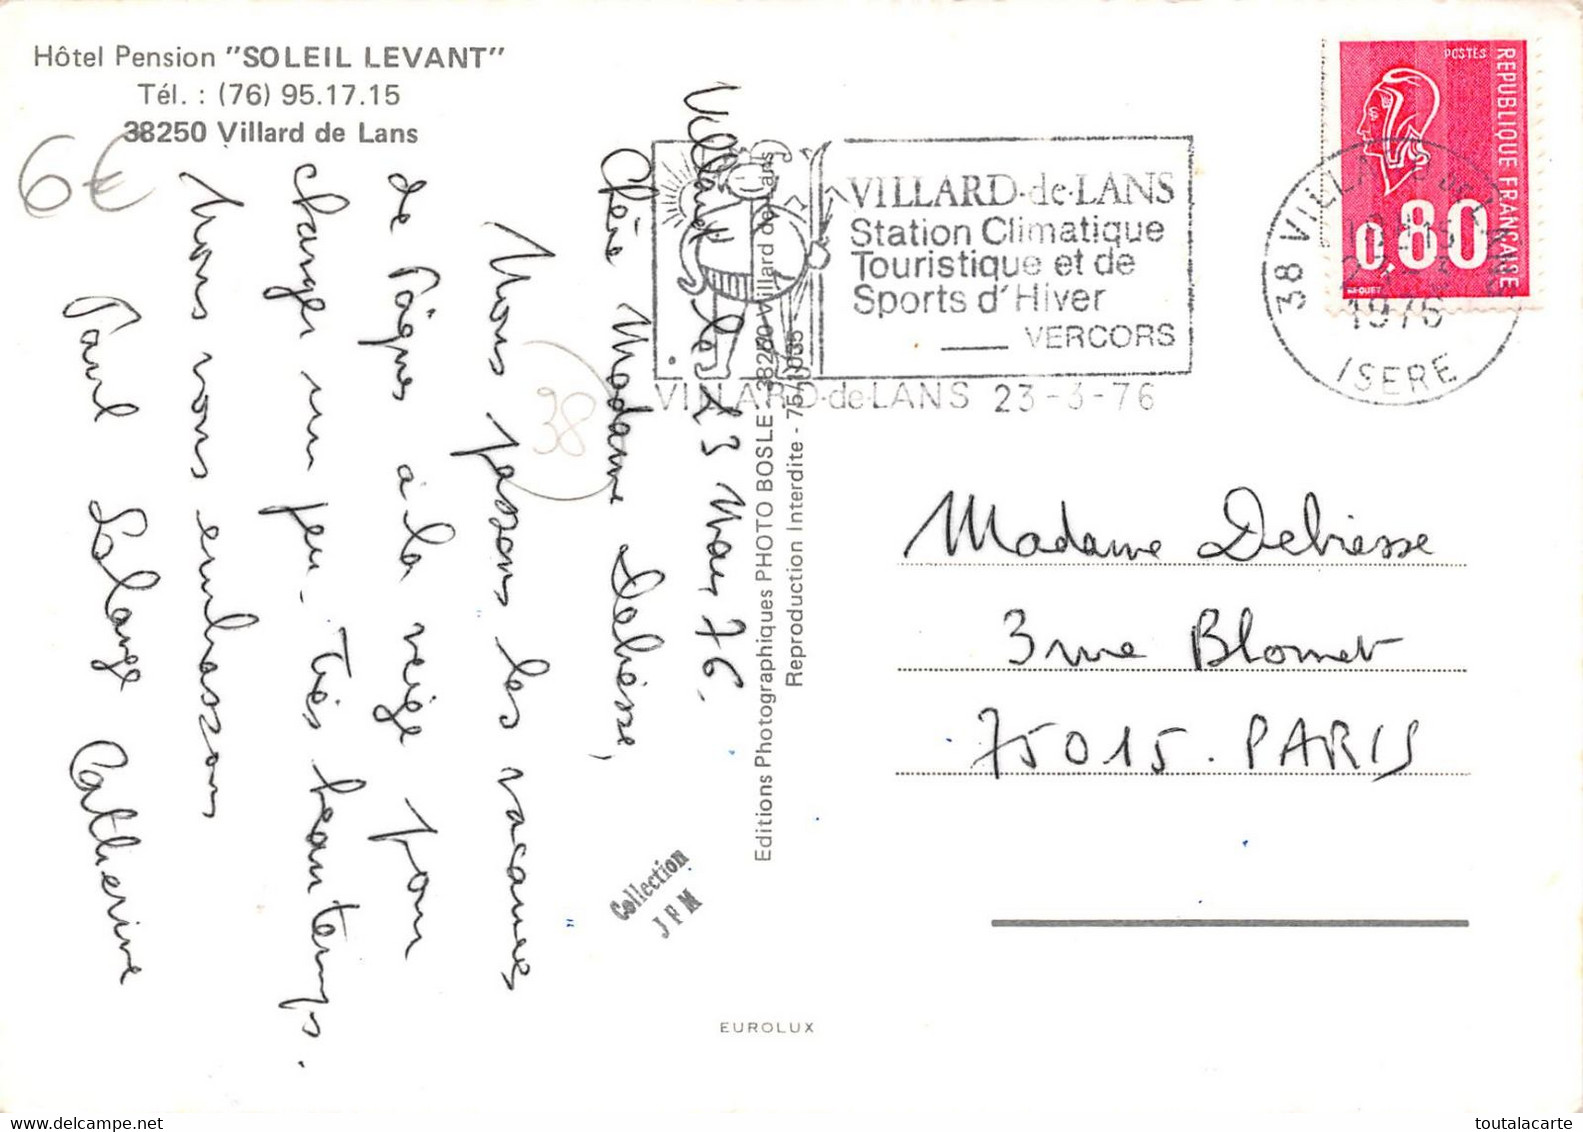 Hôtel Pension "SOLEIL LEVANT"
Tél. : (76) 95.17.15
38250 Villard de Lans
6€
Villard le 23 Mars 76.
Chère Madame Debiesse,
Nous passons les vacances
de Pâques à la neige pour
changer un peu. Très beau temps.
Nous vous embrassons
Paul Solange Catherine
38
Editions Photographiques PHOTO BOSLE - 38250 Villard de Lans
Reproduction Interdite - 75/1035
Collection
JFM
EUROLUX
VILLARD-de-LANS
Station Climatique
Touristique et de
Sports d'Hiver
VERCORS
VILLARD-de-LANS 23-3-76
POSTES
REPUBLIQUE FRANCAISE
0,80
38 VILLARD DE LANS
1976
ISERE
Madame Debiesse
3 rue Blomet
75015. PARIS
toutalacarte